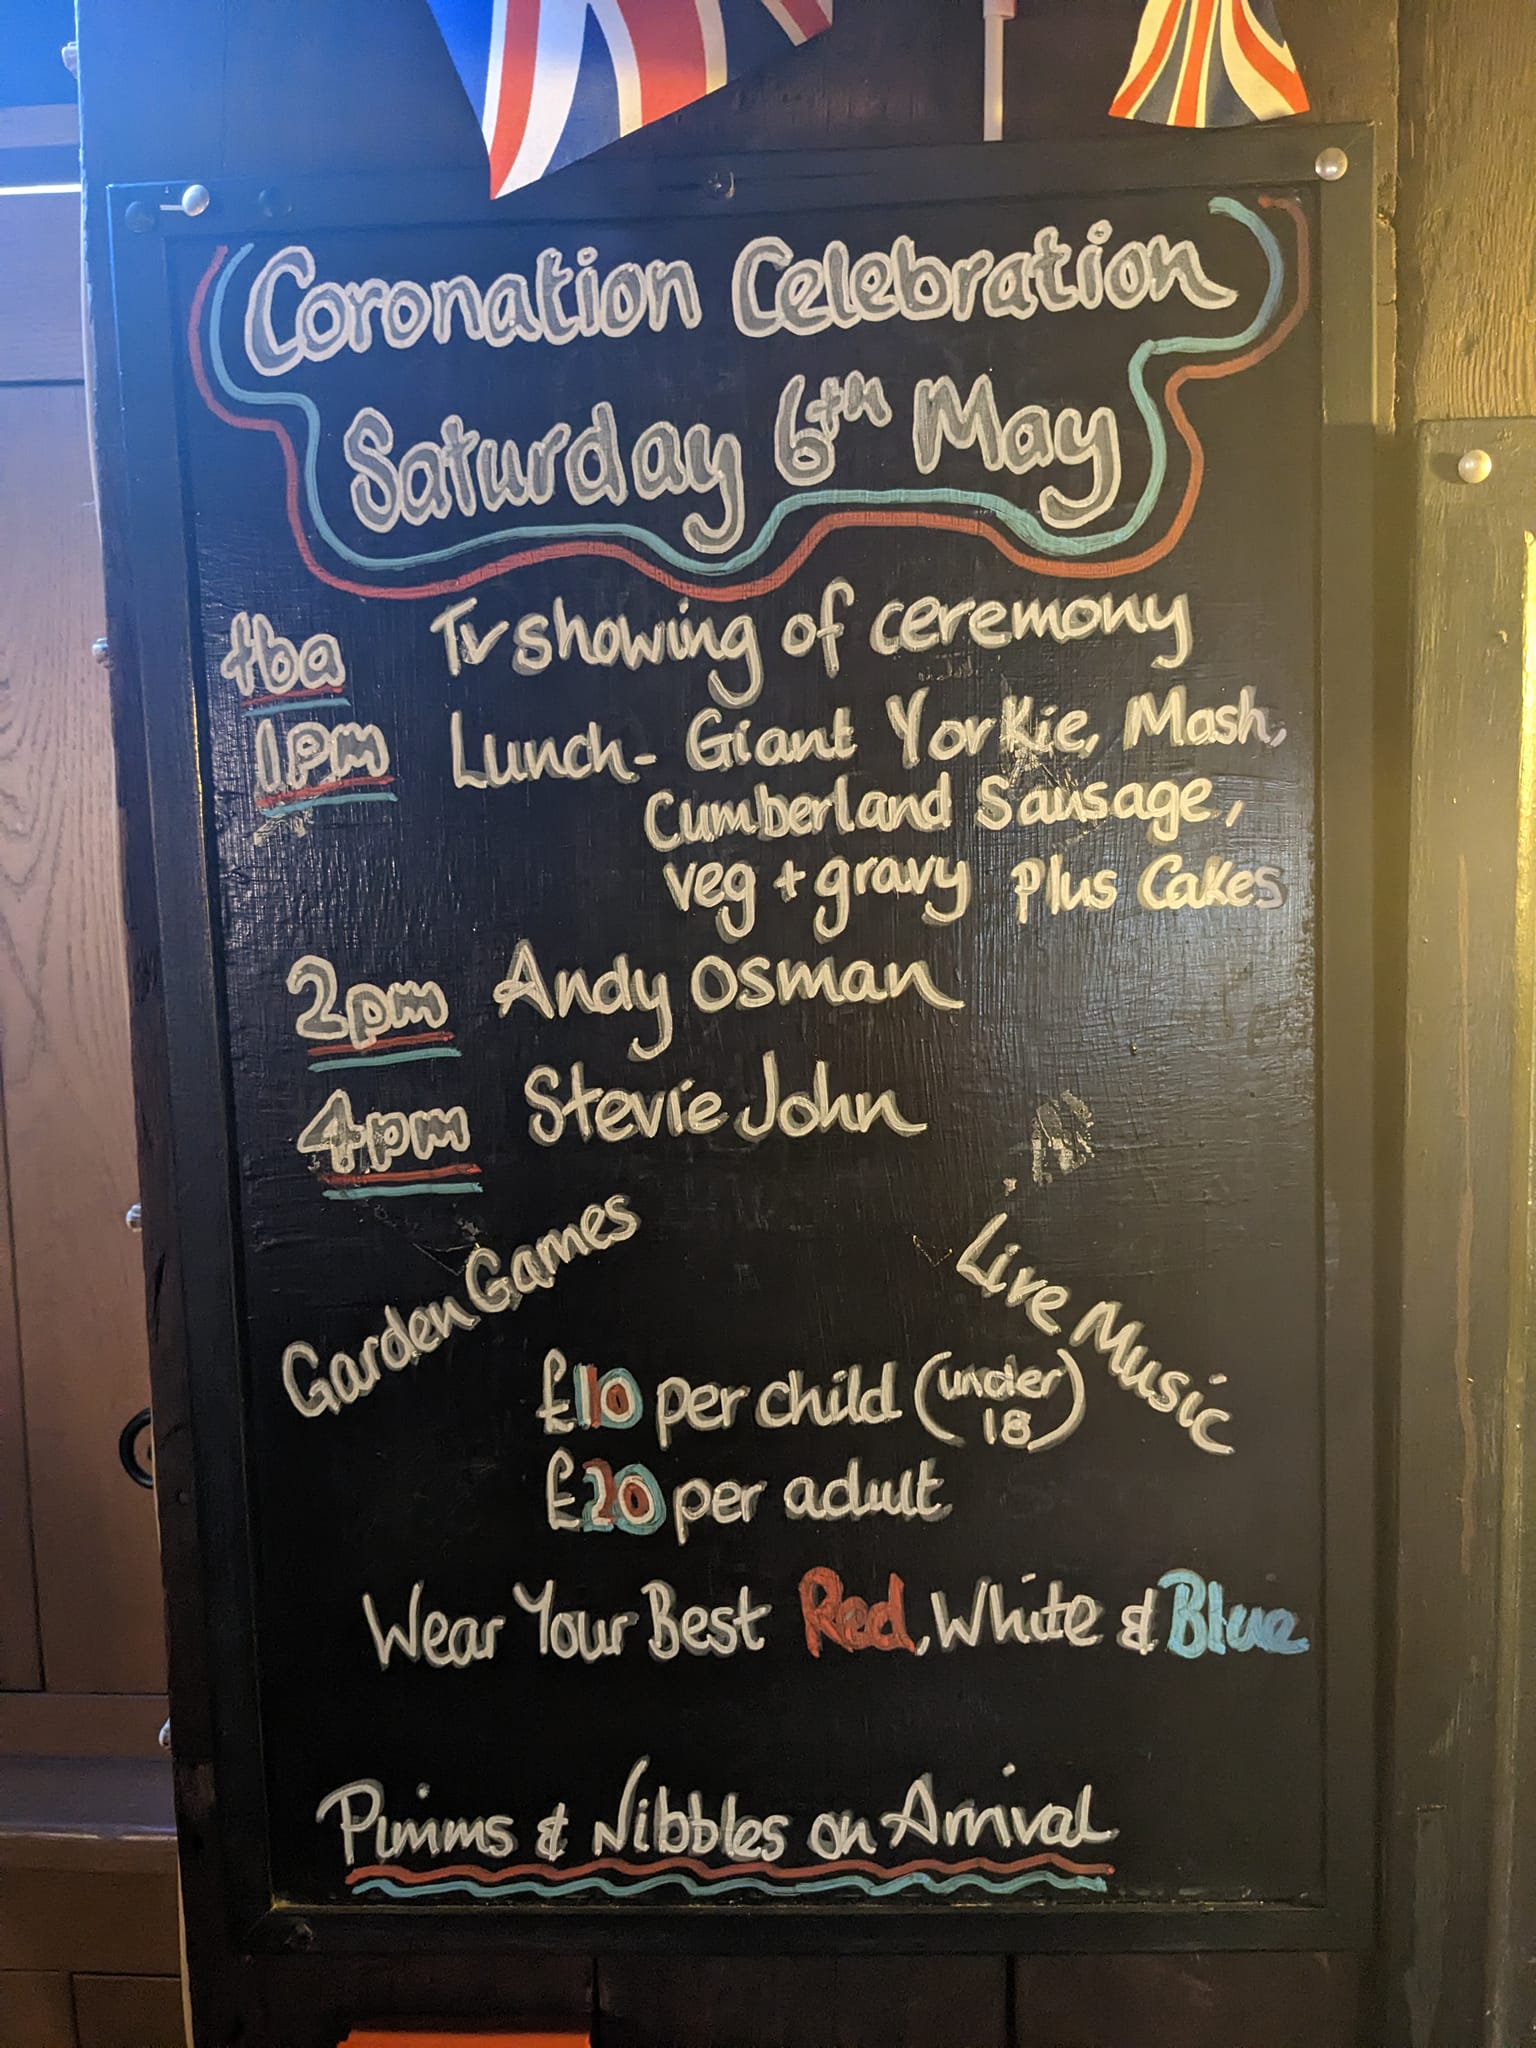 Coronation Celebration
Saturday 6th May
tba Tv showing of ceremony
1pm Lunch - Giant Yorkie, Mash,
Cumberland Sausage,
veg + gravy plus Cakes
2pm Andy Osman
4pm Stevie John
Garden Games
Live Music
£10 per child (under 18)
£20 per adult
Wear Your Best Red, White & Blue
Pimms & Nibbles on Arrival